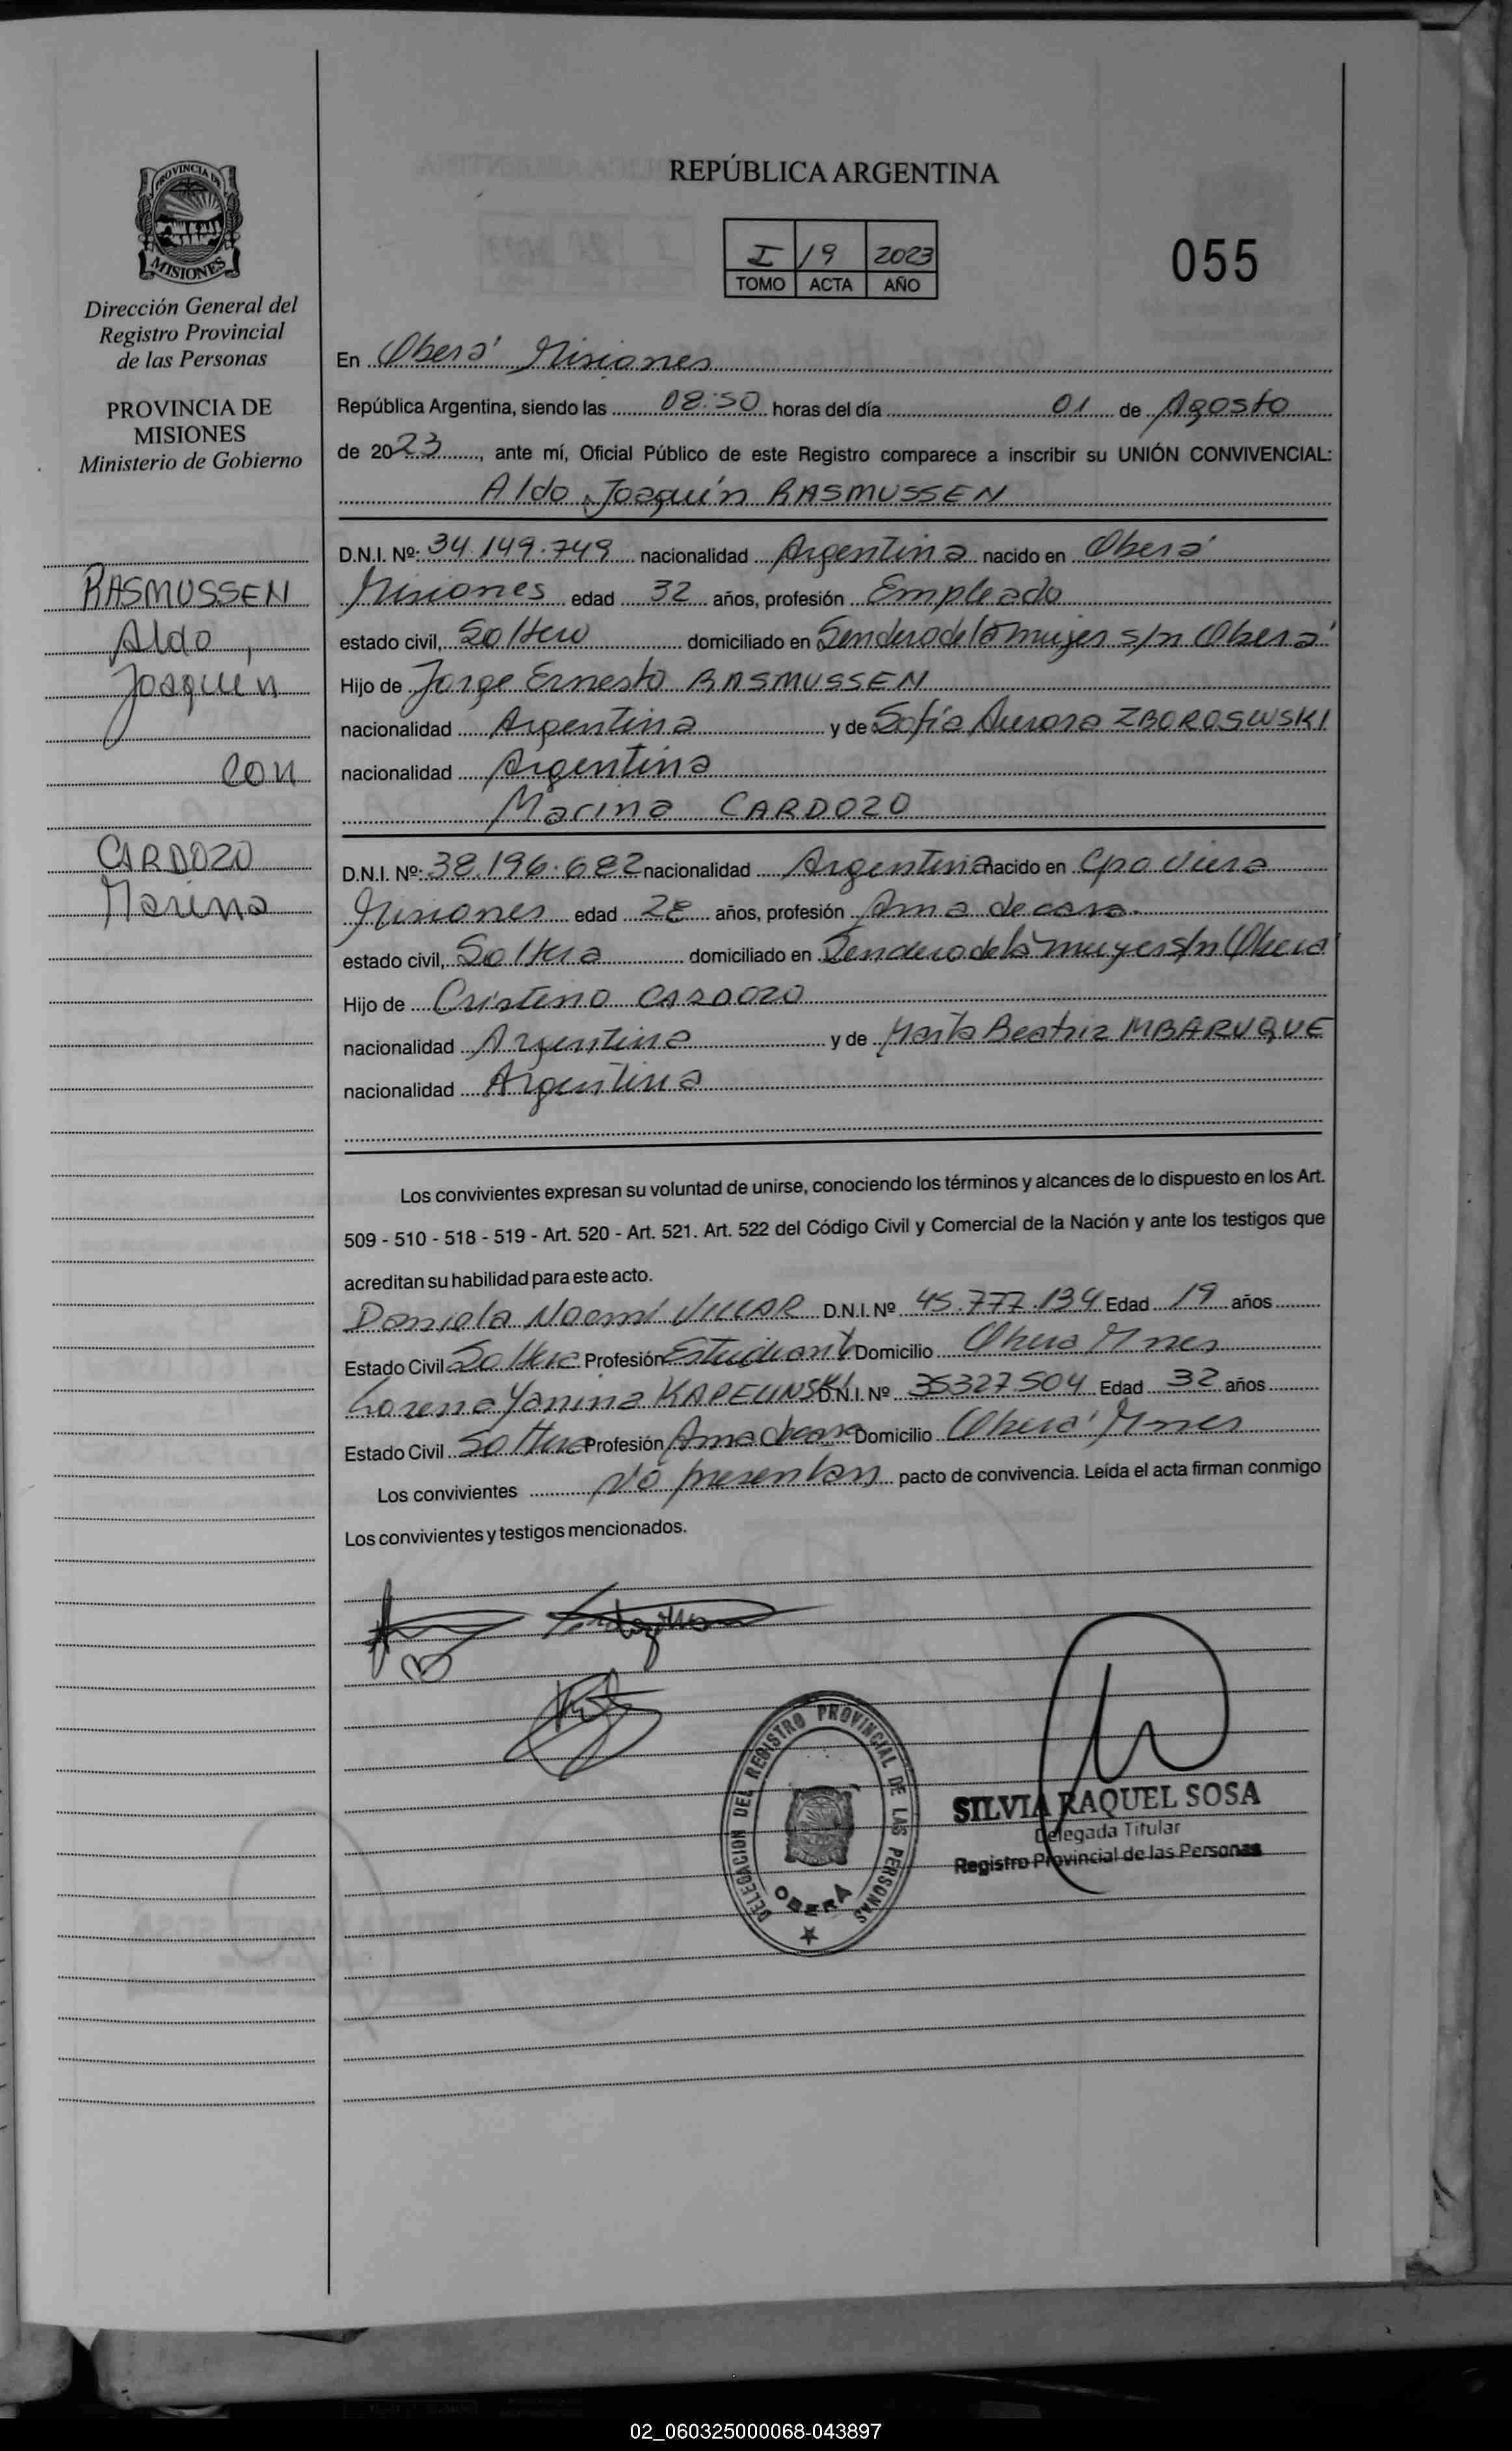 PROVINCIA DE
MISIONES
Dirección General del
Registro Provincial
de las Personas
PROVINCIA DE
MISIONES
Ministerio de Gobierno
RASMUSSEN
Aldo,
Joaquín
con
CARDOZO
Marina
REPÚBLICA ARGENTINA
I 19 2023
TOMO ACTA AÑO
055
En Oberá Misiones
República Argentina, siendo las 08:50 horas del día 01 de Agosto
de 2023, ante mí, Oficial Público de este Registro comparece a inscribir su UNIÓN CONVIVENCIAL:
Aldo Joaquín RASMUSSEN
D.N.I. Nº: 34.149.749 nacionalidad Argentina nacido en Oberá
Misiones edad 32 años, profesión Empleado
estado civil, Soltero domiciliado en Sendero de la mujer s/n Oberá
Hijo de Jorge Ernesto RASMUSSEN
nacionalidad Argentina y de Sofía Aurora ZBOROSWSKI
nacionalidad Argentina
Marina CARDOZO
D.N.I. Nº: 38.196.682 nacionalidad Argentina nacido en Cpo Viera
Misiones edad 28 años, profesión Ama de casa.
estado civil, Soltera domiciliado en Sendero de la mujer s/n Oberá
Hijo de Cristino CARDOZO
nacionalidad Argentina y de María Beatriz MBARUQUE
nacionalidad Argentina
Los convivientes expresan su voluntad de unirse, conociendo los términos y alcances de lo dispuesto en los Art.
509 - 510 - 518 - 519 - Art. 520 - Art. 521. Art. 522 del Código Civil y Comercial de la Nación y ante los testigos que
acreditan su habilidad para este acto.
Daniela Noemí VILLAR D.N.I. Nº 45.777.134 Edad 19 años
Estado Civil Soltera Profesión Estudiante Domicilio Oberá Mnes
Lorena Yanina KAPELINSKI D.N.I. Nº 35327.504 Edad 32 años
Estado Civil Soltera Profesión Ama de casa Domicilio Oberá Mnes
Los convivientes No presentan pacto de convivencia. Leída el acta firman conmigo
Los convivientes y testigos mencionados.
DELEGACION DEL REGISTRO PROVINCIAL DE LAS PERSONAS
OBERA
SILVIA RAQUEL SOSA
Delegada Titular
Registro Provincial de las Personas
02_060325000068-043897